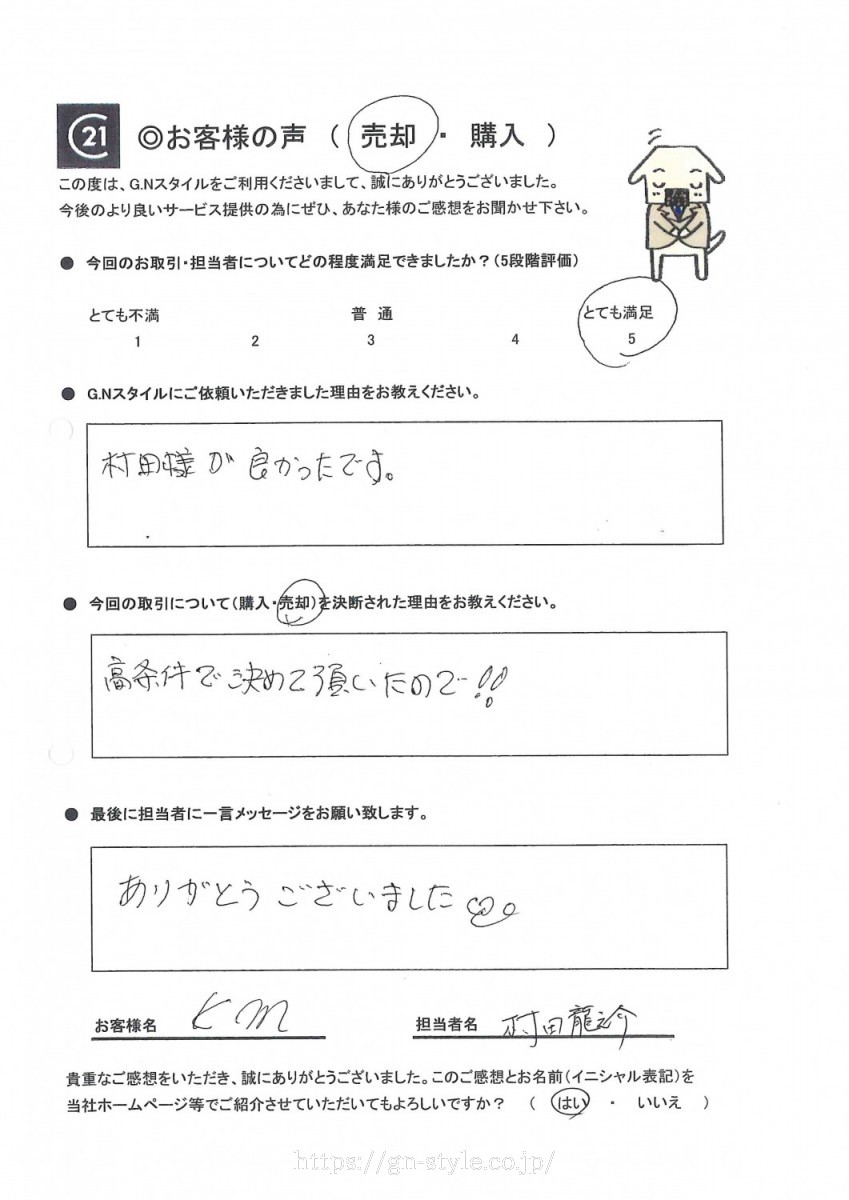 C21 ◎お客様の声 ( 売却 ・ 購入 )
この度は、G.Nスタイルをご利用くださいまして、誠にありがとうございました。
今後のより良いサービス提供の為にぜひ、あなた様のご感想をお聞かせ下さい。
● 今回のお取引・担当者についてどの程度満足できましたか？(5段階評価)
とても不満 普 通 とても満足
1 2 3 4 5
● G.Nスタイルにご依頼いただきました理由をお教えください。
村田様が良かったです。
● 今回の取引について(購入・売却)を決断された理由をお教えください。
高条件で決めて頂いたので!!
● 最後に担当者に一言メッセージをお願い致します。
ありがとうございました
お客様名 K m 担当者名 村田龍之介
貴重なご感想をいただき、誠にありがとうございました。このご感想とお名前(イニシャル表記)を
当社ホームページ等でご紹介させていただいてもよろしいですか？ ( はい ・ いいえ )
https://gn-style.co.jp/